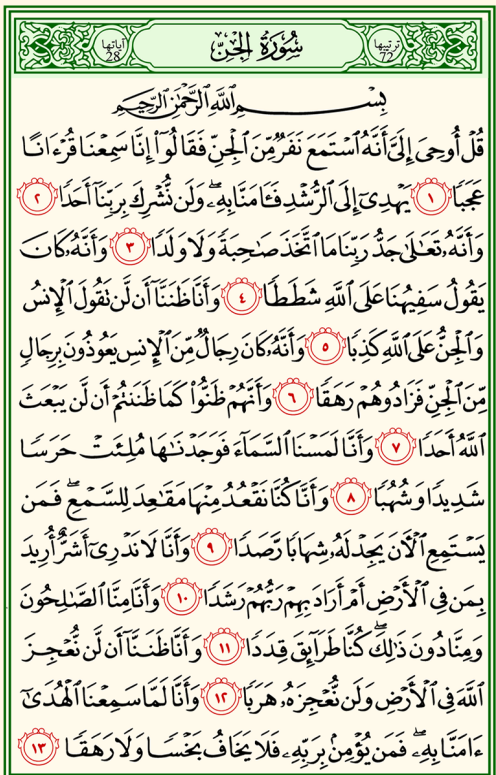 ترتيبها 72 سُورَةُ الجِنِّ آياتها 28
بِسْمِ ٱللَّهِ ٱلرَّحْمَٰنِ ٱلرَّحِيمِ
قُلْ أُوحِىَ إِلَىَّ أَنَّهُ ٱسْتَمَعَ نَفَرٌ مِّنَ ٱلْجِنِّ فَقَالُوٓا۟ إِنَّا سَمِعْنَا قُرْءَانًا
عَجَبًا ١ يَهْدِىٓ إِلَى ٱلرُّشْدِ فَـَٔامَنَّا بِهِۦ ۖ وَلَن نُّشْرِكَ بِرَبِّنَآ أَحَدًا ٢
وَأَنَّهُۥ تَعَٰلَىٰ جَدُّ رَبِّنَا مَا ٱتَّخَذَ صَٰحِبَةً وَلَا وَلَدًا ٣ وَأَنَّهُۥ كَانَ
يَقُولُ سَفِيهُنَا عَلَى ٱللَّهِ شَطَطًا ٤ وَأَنَّا ظَنَنَّآ أَن لَّن تَقُولَ ٱلْإِنسُ
وَٱلْجِنُّ عَلَى ٱللَّهِ كَذِبًا ٥ وَأَنَّهُۥ كَانَ رِجَالٌ مِّنَ ٱلْإِنسِ يَعُوذُونَ بِرِجَالٍ
مِّنَ ٱلْجِنِّ فَزَادُوهُمْ رَهَقًا ٦ وَأَنَّهُمْ ظَنُّوا۟ كَمَا ظَنَنتُمْ أَن لَّن يَبْعَثَ
ٱللَّهُ أَحَدًا ٧ وَأَنَّا لَمَسْنَا ٱلسَّمَآءَ فَوَجَدْنَٰهَا مُلِئَتْ حَرَسًا
شَدِيدًا وَشُهُبًا ٨ وَأَنَّا كُنَّا نَقْعُدُ مِنْهَا مَقَٰعِدَ لِلسَّمْعِ ۖ فَمَن
يَسْتَمِعِ ٱلْـَٔانَ يَجِدْ لَهُۥ شِهَابًا رَّصَدًا ٩ وَأَنَّا لَا نَدْرِىٓ أَشَرٌّ أُرِيدَ
بِمَن فِى ٱلْأَرْضِ أَمْ أَرَادَ بِهِمْ رَبُّهُمْ رَشَدًا ١٠ وَأَنَّا مِنَّا ٱلصَّٰلِحُونَ
وَمِنَّا دُونَ ذَٰلِكَ ۖ كُنَّا طَرَآئِقَ قِدَدًا ١١ وَأَنَّا ظَنَنَّآ أَن لَّن نُّعْجِزَ
ٱللَّهَ فِى ٱلْأَرْضِ وَلَن نُّعْجِزَهُۥ هَرَبًا ١٢ وَأَنَّا لَمَّا سَمِعْنَا ٱلْهُدَىٰٓ
ءَامَنَّا بِهِۦ ۖ فَمَن يُؤْمِنۢ بِرَبِّهِۦ فَلَا يَخَافُ بَخْسًا وَلَا رَهَقًا ١٣